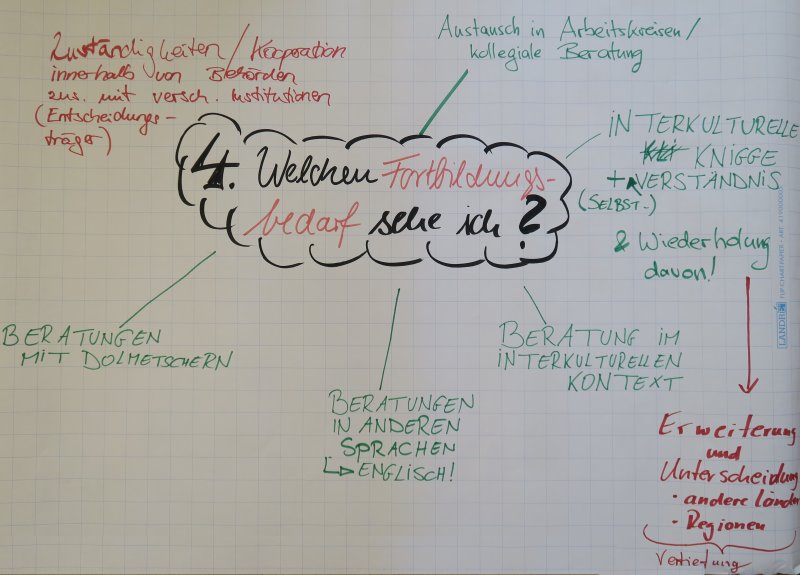 Zuständigkeiten / Kooperation
innerhalb von Behörden
zus. mit versch. Institutionen
(Entscheidungs-
träger)
Austausch in Arbeitskreisen /
kollegiale Beratung
4. Welchen Fortbildungs-
bedarf sehe ich ?
INTERKULTURELLE
KNIGGE
+ VERSTÄNDNIS
(SELBST-)
& Wiederholung
davon!
BERATUNGEN
MIT DOLMETSCHERN
BERATUNGEN
IN ANDEREN
SPRACHEN
ENGLISCH!
BERATUNG IM
INTERKULTURELLEN
KONTEXT
Erweiterung
und
Unterscheidung
• andere Länder
• Regionen
Vertiefung
LANDRÉ FLIPCHARTPAPIER - ART.